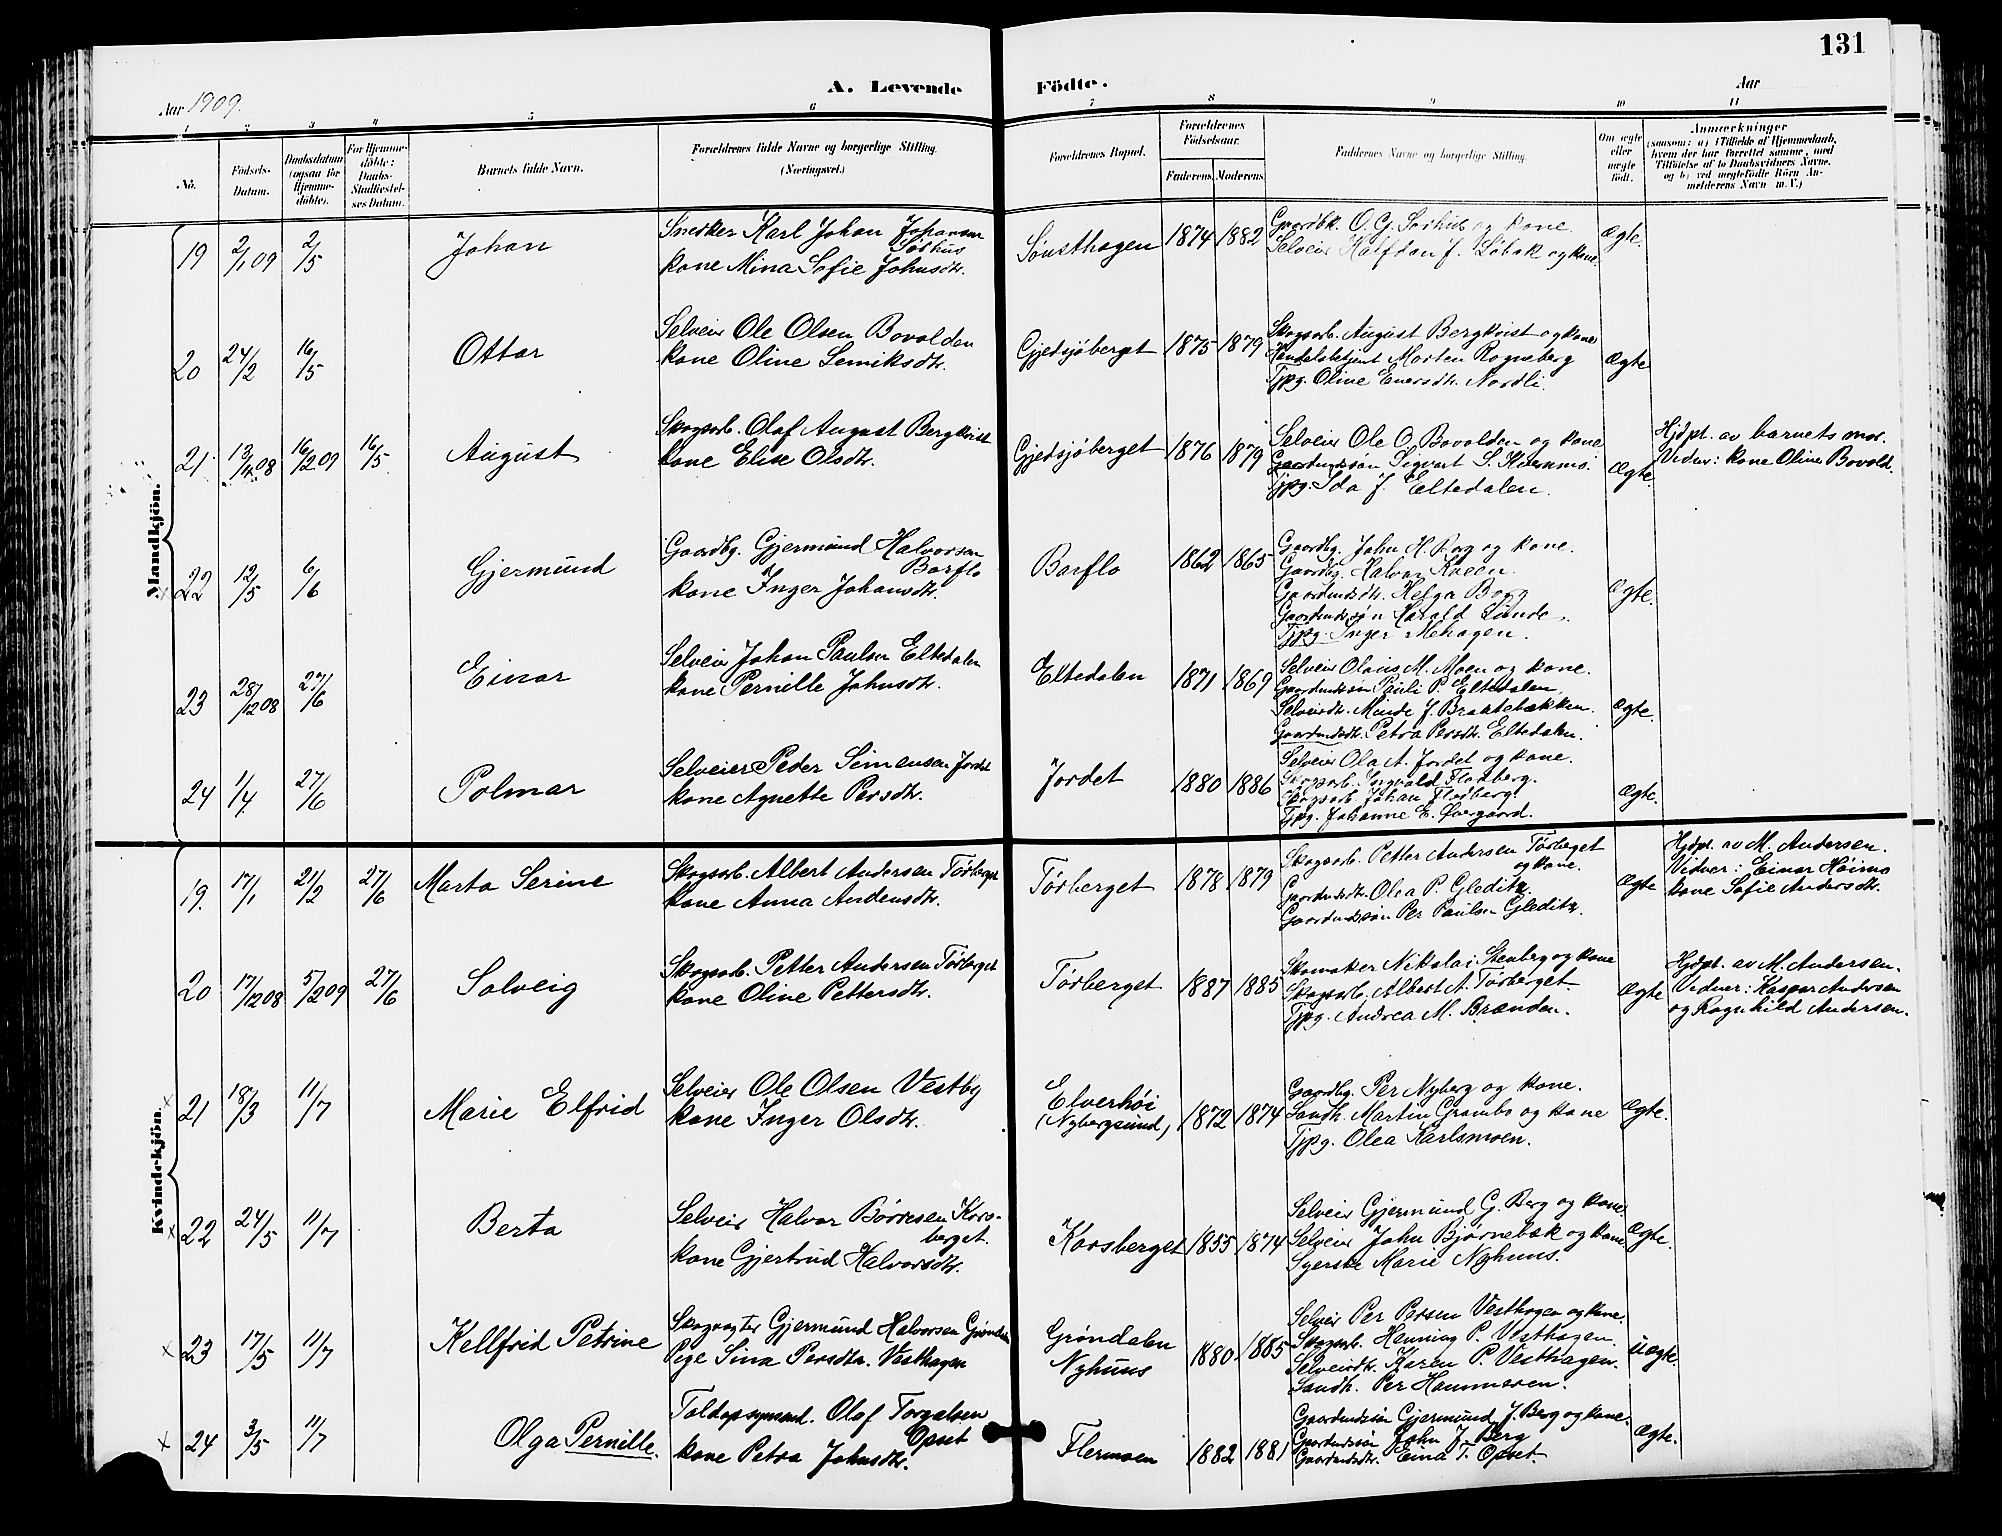 131
A. Levende Födte.
Aar 1909.
Aar
1 2 3 4 5 6 7 8 9 10 11
No.
Födsels-Datum.
Daabsdatum (ogsaa for Hjemme-döbte).
For Hjemme-döbte: Daabs-Stadfæstel-ses Datum.
Barnets fulde Navn.
Forældrenes fulde Navne og borgerlige Stilling. (Næringsvei.)
Forældrenes Bopæl.
Forældrenes Födselsaar.
Faderens Moderens
Faddernes Navne og borgerlige Stilling.
Om ægte eller uægte födt.
Anmærkninger
(saasom: a) i Tilfælde af Hjemmedaab, hvem der har forrettet samme, med Tilföielse af to Daabsvidners Navne, og b) ved uægtefödte Börn An-melderens Navn m. V.)
Mandkjön.
19 2/1 09 2/5 Johan
Snedker Karl Johan Johansen Sørhus
kone Mina Sofie Johnsdtr.
Sønsthagen 1874 1882
Gaardbr. O. G. Sørhus og kone
Selveier Halfdan J. Løbak og kone.
Ægte.
20 24/2 16/5 Ottar
Selveier Ole Olsen Bovolden
kone Oline Semiksdtr.
Gjedsjøberget 1875 1879
Skogsarb. August Bergkvist og kone
Handelsbetjent Morten Rogneberg
Tjpg. Oline Enersdtr. Nordli.
Ægte
21 13/4 08 16/2 09 16/5 August
Skogsarb. Olaf August Bergkvist
kone Elise Olsdtr.
Gjedsjøberget 1876 1879
Selveier Ole O. Bovolden og kone
Gaardmdssøn Sigvart S. Kvernmo.
Tjpg. Ida J. Eltedalen.
Ægte.
Hjdpt. av barnets mor.
Vidner: kone Oline Bovold.
22 12/5 6/6 Gjermund
Gaardbg. Gjermund Halvorsen Barflo
kone Inger Johansdtr.
Barflo 1862 1865
Gaardbg. John H. Borg og kone.
Gaardbg. Halvor Kveen.
Gaardmdsdtr. Helga Borg
Gaardmdssøn Harald Lunde.
Tjpg. Inger Mehagen.
Ægte.
23 28/12 08 27/6 Einar
Selveier Johan Paulsen Eltedalen
kone Pernille Johnsdtr.
Eltedalen 1871 1869
Selveier Olaus M. Moen og kone.
Gaardmdssøn Pauli P. Eltedalen.
Selveierdtr. Minde J. Brattebækken.
Gaardmdsdtr. Petra Persdtr. Eltedalen.
Ægte.
24 1/4 27/6 Polmar
Selveier Peder Simensen Jordet
kone Agnette Persdtr.
Jordet 1880 1886
Selveier Ola A. Jordet og kone.
Skogsarb. Ingvald Flodberg.
Skogsarb. Johan Flodberg.
Tjpg. Johanne E. Øvergaard.
Ægte.
Kvindekjön.
19. 17/1 21/2 27/6 Marta Serine
Skogsarb. Albert Andersen Tørberget
kone Anna Andersdtr.
Tørberget 1878 1879
Skogsarb. Petter Andersen Tørberget og kone.
Gaardmdsdtr. Olea P. Gleditz.
Gaardmdssøn Per Paulsen Gleditz.
Ægte
Hjdpt. av M. Andersen.
Vidner: Einar Høimo
kone Sofie Andersdtr.
20 17/12 08 5/2 09 27/6 Solveig
Skogsarb. Petter Andersen Tørberget
kone Oline Pettersdtr.
Tørberget 1887 1885
Skomaker Nikolai Stenberg og kone
Skogsarb. Albert A. Tørberget.
Tjpg. Andrea M. Brænden.
Ægte
Hjdpt. av M. Andersen.
Vidner: Kaspar Andersen
og Ragnhild Andersen.
21 18/3 11/7 Marie Elfrid
Selveier Ole Olsen Vestby
kone Inger Olsdtr.
Elverhöi (Nybergsund) 1872 1874
Gaardbg. Per Nyberg og kone.
Landh. Martin Grambo og kone
Tjpg. Olea Karlsmoen.
Ægte.
x 22 24/5 11/7 Berta
Selveier Halvor Børresen Kors-berget.
kone Gjertrud Halvorsdtr.
Korsberget 1855 1874
Selveier Gjermund G. Berg og kone
Selveier John Bjørnebæk og kone
Syerske Marie Nyhuus.
Ægte.
x 23 17/5 11/7 Kellfrid Petrine
Skogvogter Gjermund Halvorsen Grøndalen
Pige Sina Persdtr. Vesthagen
Grøndalen Nyhuus 1880 1885
Selveier Per Persen Vesthagen og kone.
Skogsarb. Henning P. Vesthagen.
Selveierdtr. Karen P. Vesthagen.
Landh. Per Hammeren.
Uægte.
x 24 3/5 11/7 Olga Pernille.
Toldopsynsmd. Olaf Torgalsen Opset
kone Petra Johnsdtr.
Flermoen 1882 1881
Gaardmdssøn Gjermund J. Berg og kone.
Gaardmdssøn John J. Berg
Gaardmdsdtr. Eina T. Opset.
Ægte.